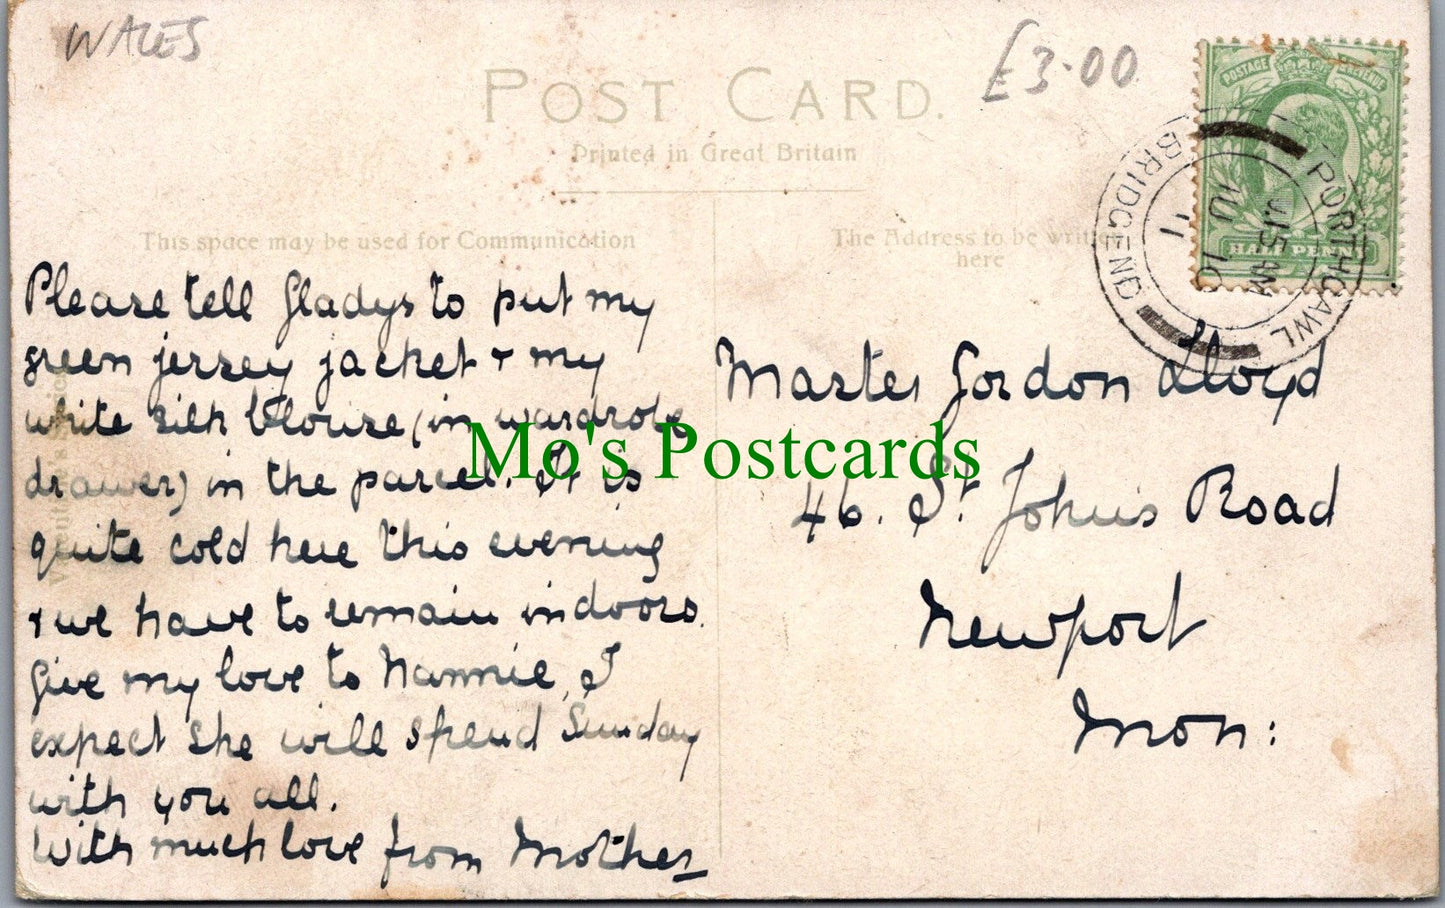 WALES
£3.00
POST CARD.
Printed in Great Britain
This space may be used for Communication
The Address to be written
here
POSTAGE REVENUE
HALF PENNY
PORTHCAWL
BRIDGEND
AU 11
10
Please tell Gladys to put my
green jersey jacket + my
white silk blouse (in wardrobe
drawer) in the parcel. It is
quite cold here this evening
+ we have to remain indoors.
Give my love to Nannie, I
expect she will spend Sunday
with you all.
With much love from Mother
Master Gordon Lloyd
46. St. John's Road
Newport
Mon:
Mo's Postcards